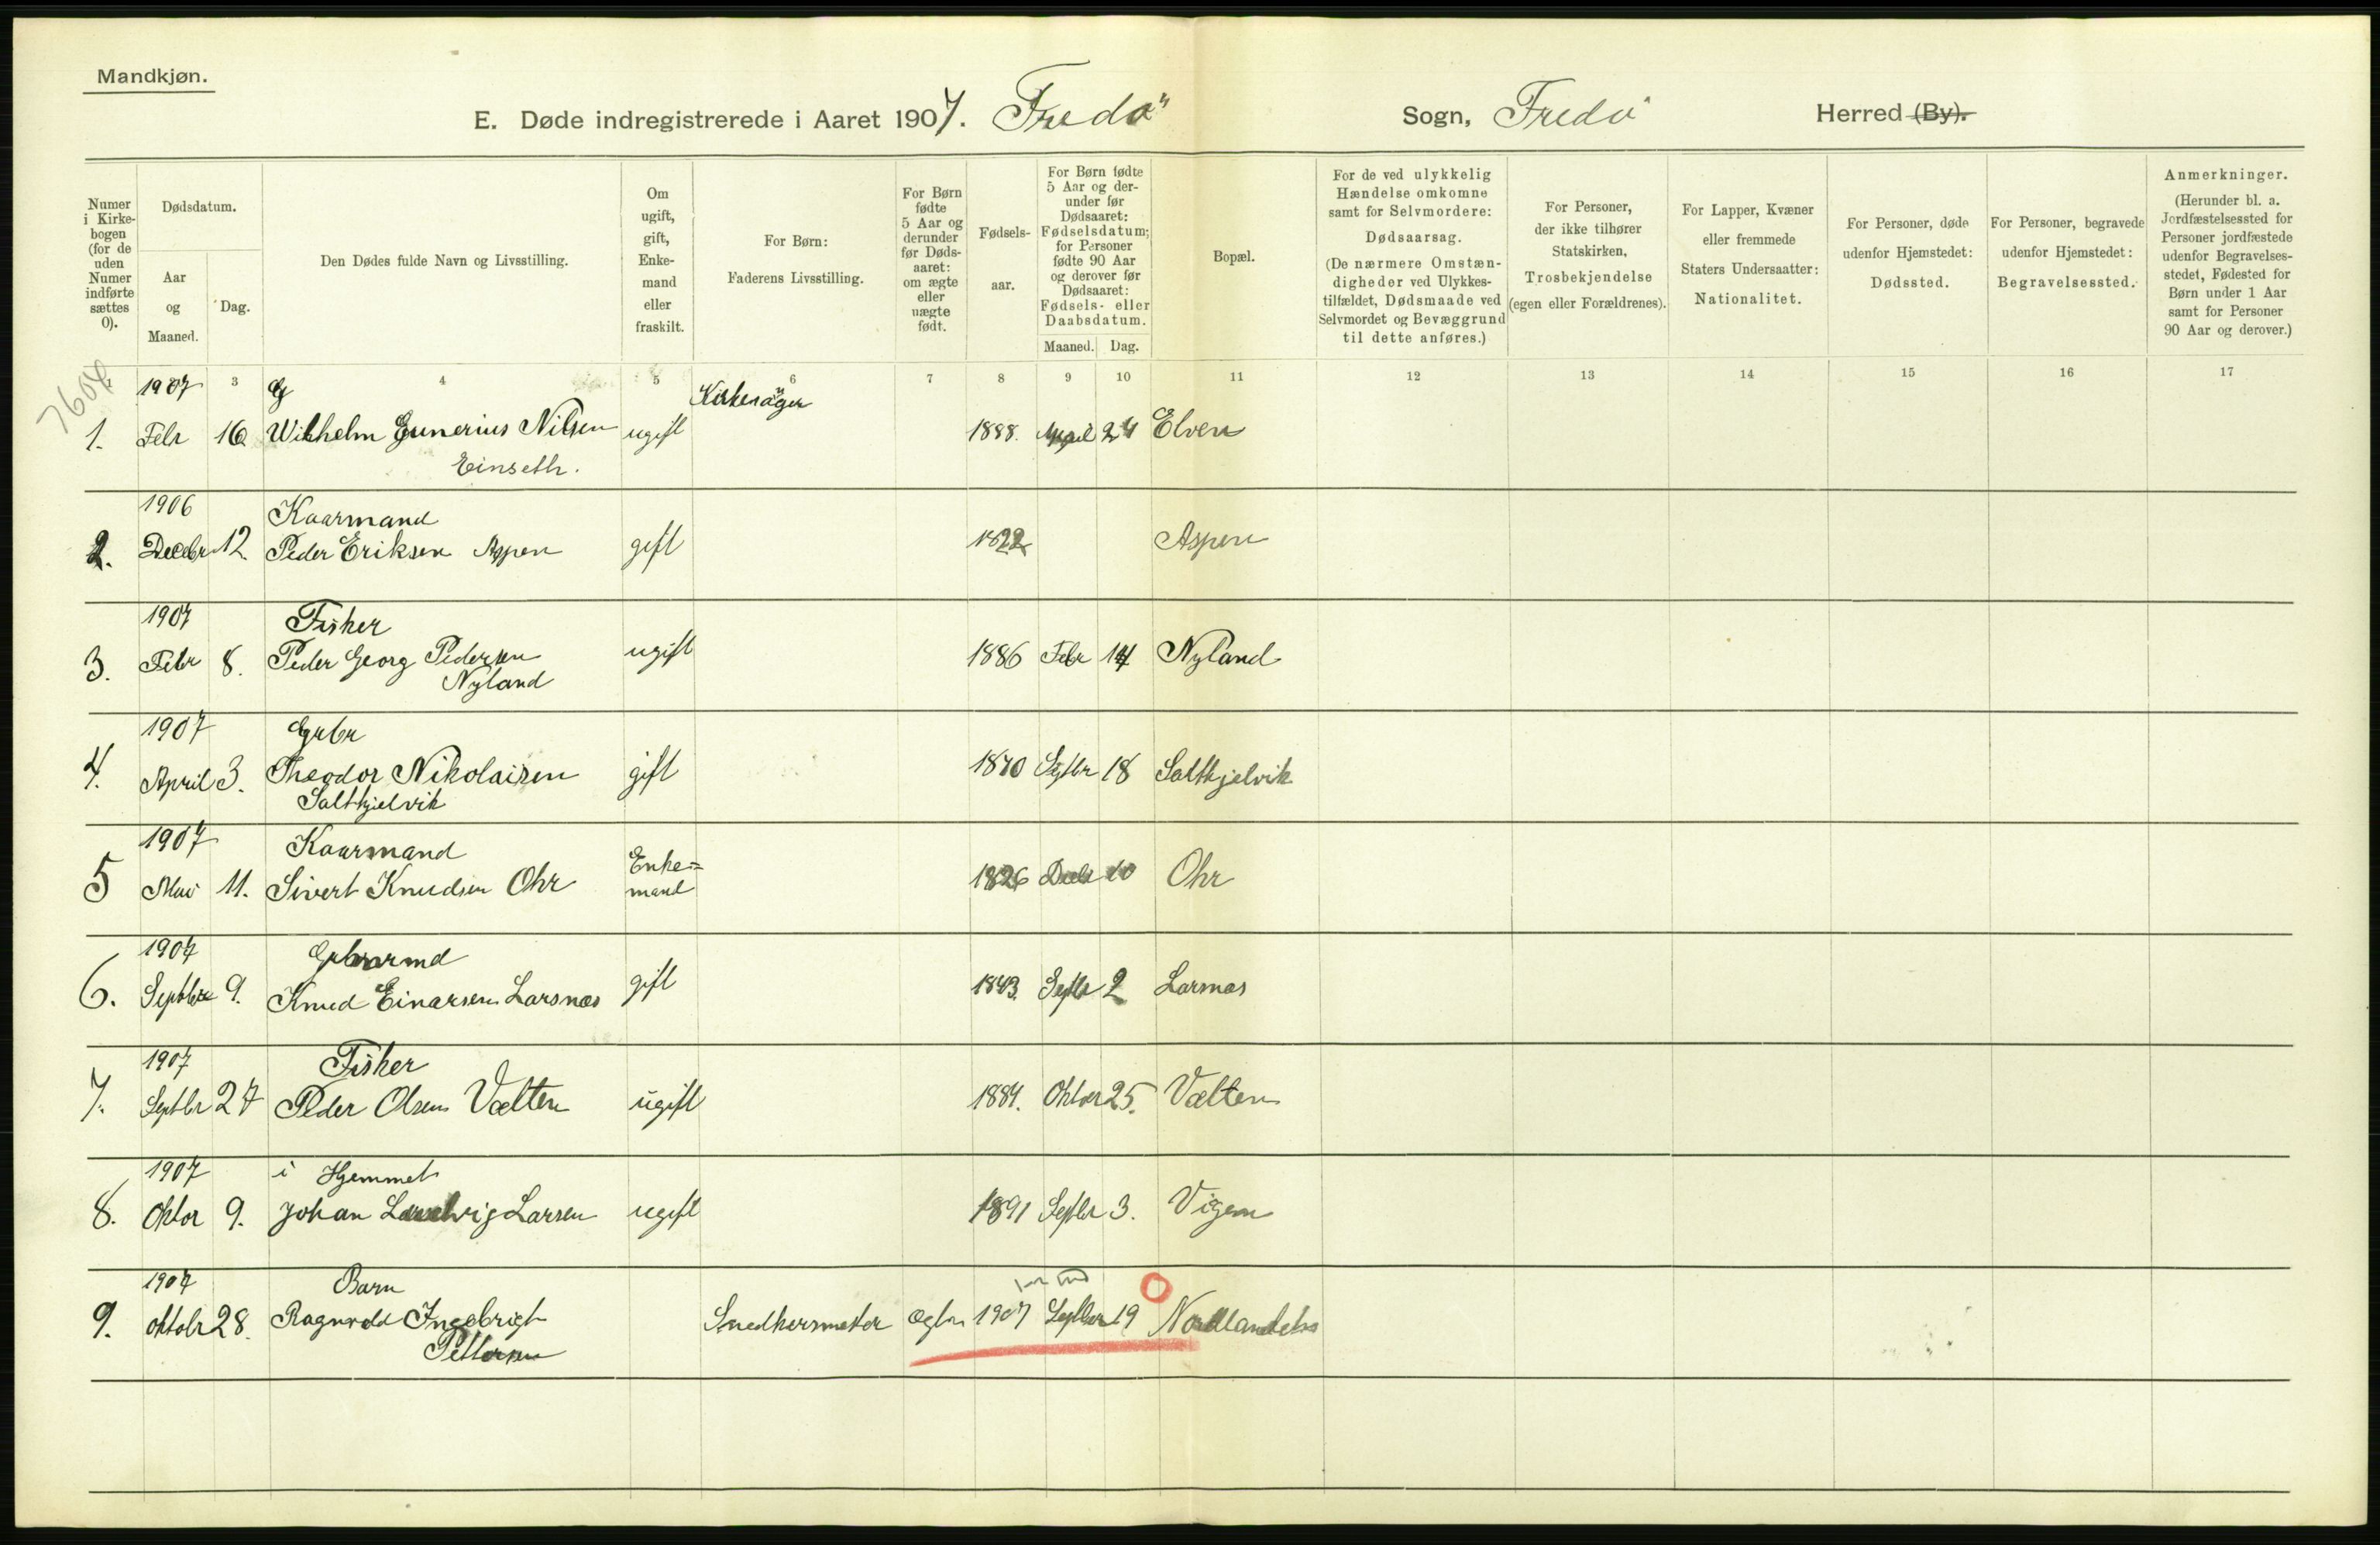 Mandkjøn.
E. Døde indregistrerede i Aaret 1907. Fredø Sogn, Fredø Herred (By).
Numer i Kirkebogen (for de uden Numer indførte sættes 0).
Dødsdatum.
Aar og Maaned.
Dag.
Den Dødes fulde Navn og Livsstilling.
Om ugift, gift, Enkemand eller fraskilt.
For Børn:
Faderens Livsstilling.
For Børn fødte 5 Aar og derunder før Dødsaaret: om ægte eller uægte født.
Fødselsaar.
For Børn fødte 5 Aar og derunder før Dødsaaret: Fødselsdatum; for Personer fødte 90 Aar og derover før Dødsaaret: Fødsels- eller Daabsdatum.
Maaned. Dag.
Bopæl.
For de ved ulykkelig Hændelse omkomne samt for Selvmordere:
Dødsaarsag.
(De nærmere Omstændigheder ved Ulykkestilfældet, Dødsmaade ved Selvmordet og Bevæggrund til dette anføres.)
For Personer, der ikke tilhører Statskirken, Trosbekjendelse (egen eller Forældrenes).
For Lapper, Kvæner eller fremmede Staters Undersaatter: Nationalitet.
For Personer, døde udenfor Hjemstedet: Dødssted.
For Personer, begravede udenfor Hjemstedet: Begravelsessted.
Anmerkninger.
(Herunder bl. a. Jordfæstelsessted for Personer jordfæstede udenfor Begravelsesstedet, Fødested for Børn under 1 Aar samt for Personer 90 Aar og derover.)
3 4 5 6 7 8 9 10 11 12 13 14 15 16 17
7604
1907 G Kirkesanger
1. Febr 16 Wilhelm Gunerius Nilsen ugift 1888. April 24 Elven
Einseth.
1906 Kaarmand
2. Decbr 12 Peder Eriksen Aspen gift 1822 Aspen
1907 Fisker
3. Febr 8. Peder Georg Pedersen ugift 1886 Febr 14 Nyland
Nyland
1907 Grbr
4. April 3. Theodor Nikolaisen gift 1870 Septbr 18 Saltkjelvik
Saltkjelvik
1907 Kaarmand
5 Mai 11. Sivert Knudsen Ohr Enkemand 1826 Decbr 10 Ohr
1907
6. Septbr 9. Knud Einarsen Larsnes gift 1843. Septbr 2 Larsnes
1907 Fisker
7. Septbr 27 Peder Olsen Vælten ugift 1884. Oktbr 25. Vælten
1907 i Hjemmet
8. Oktbr 9. Johan Ludvig Larsen ugift 1891 Septbr 3. Vigen
1907 Barn
9. Oktobr 28. Ragnvald Ingebrigt Snedkermester ægte 1907 Septbr 19 Nordlandet
Pettersen